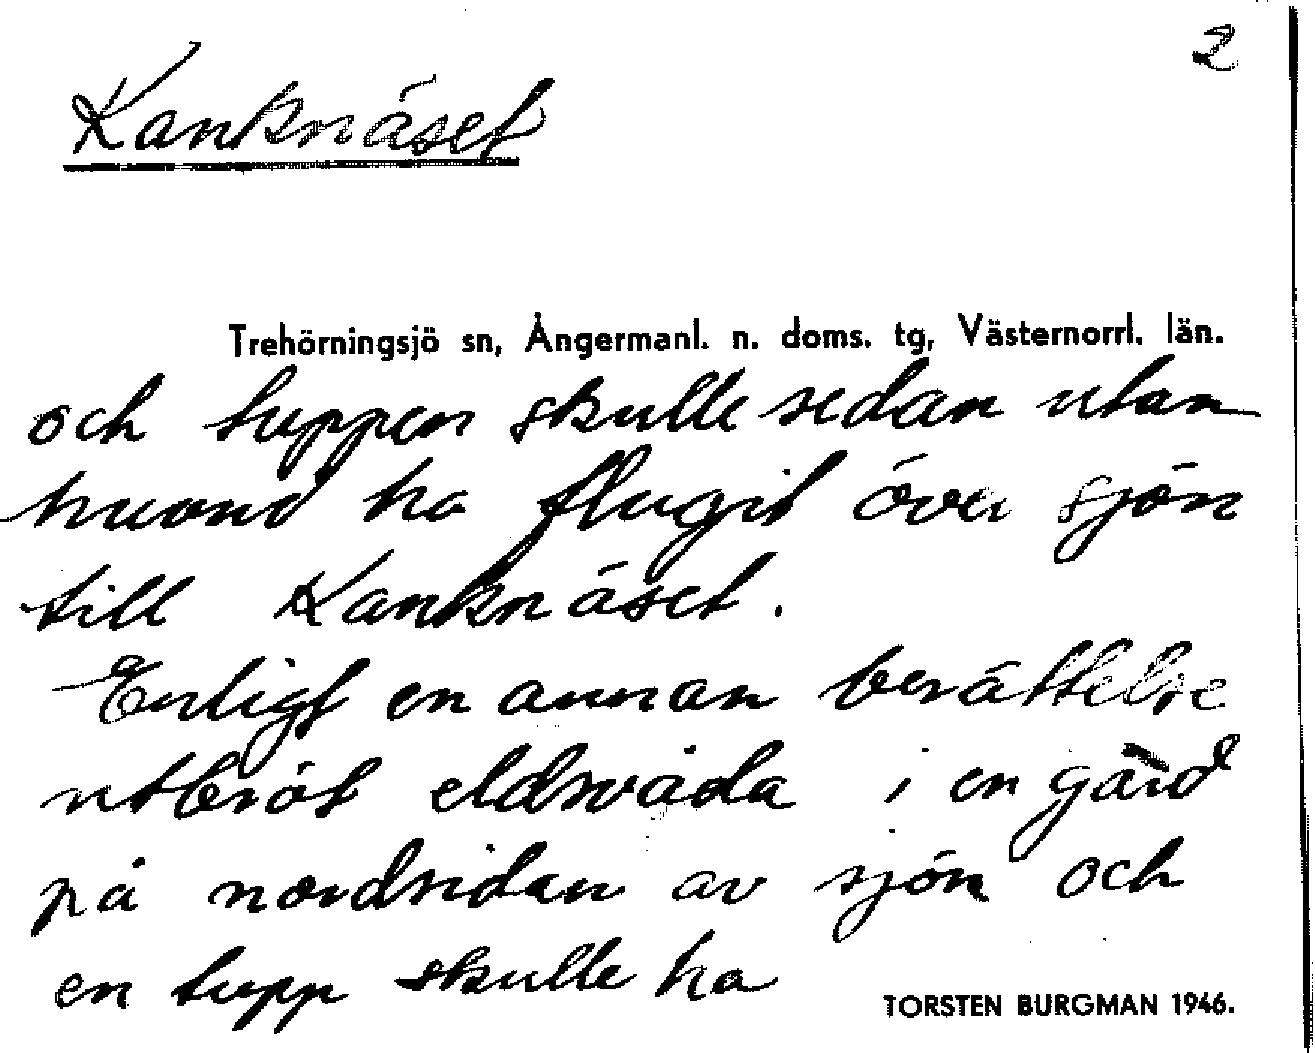 2
Kanknäset
Trehörningsjö sn, Ångermanl. n. doms. tg, Västernorrl. län.
och tuppen skulle sedan utan
huvud ha flugit över sjön
till Kanknäset.
Enligt en annan berättelse
utbröt eldsvåda i en gård
på nordsidan av sjön och
en tupp skulle ha
TORSTEN BURGMAN 1946.